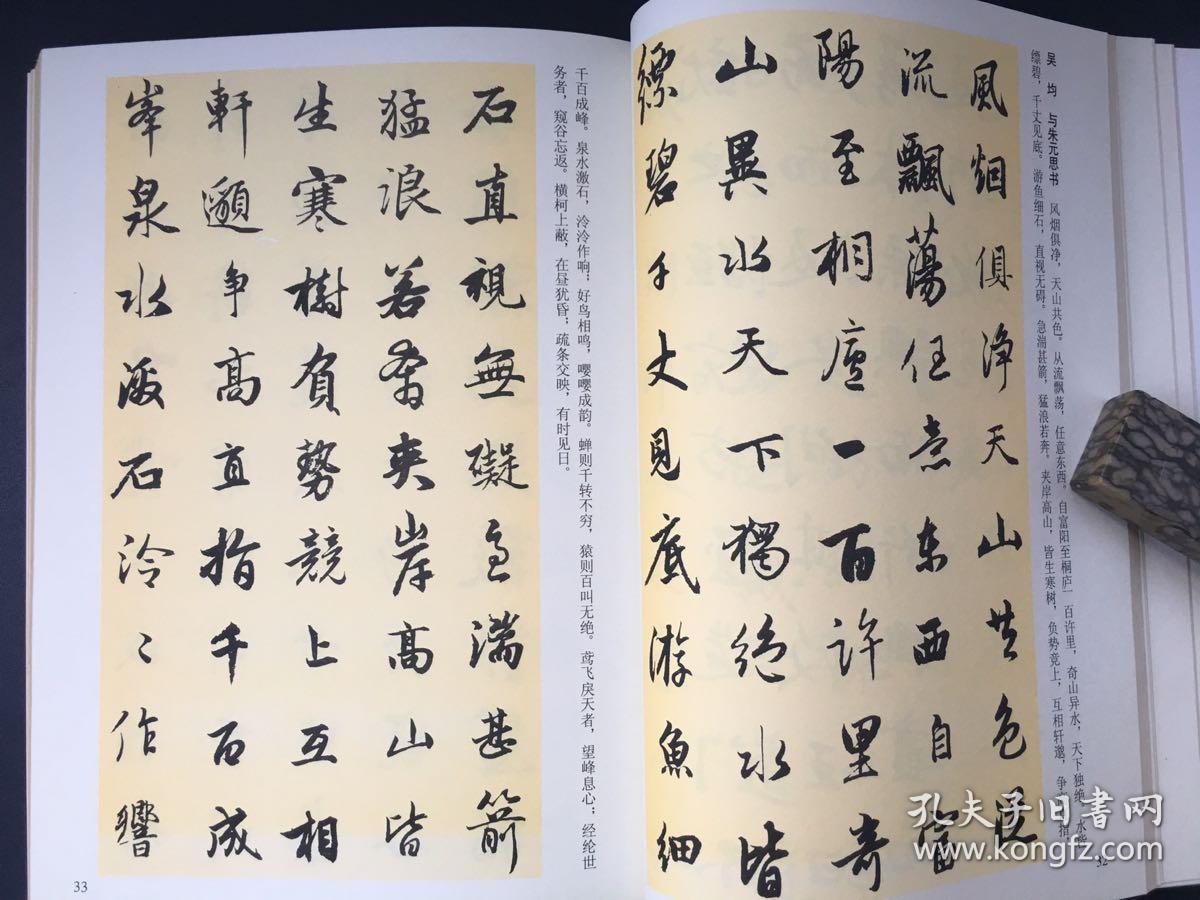 吴 均 与朱元思书 风烟俱净，天山共色。从流飘荡，任意东西。自富阳至桐庐一百许里，奇山异水，天下独绝。水皆
缥碧，千丈见底。游鱼细石，直视无碍。急湍甚箭，猛浪若奔。夹岸高山，皆生寒树，负势竞上，互相轩邈，争高 指
風烟俱淨天山共色從
流飄蕩任意东西自富
陽至桐廬一百許里奇
山異水天下獨絶水皆
縹碧千丈見底游魚細
32
千百成峰。泉水激石，泠泠作响；好鸟相鸣，嘤嘤成韵。蝉则千转不穷，猿则百叫无绝。鸢飞戾天者，望峰息心；经纶世
务者，窥谷忘返。横柯上蔽，在昼犹昏；疏条交映，有时见日。
石直視無礙急湍甚箭
猛浪若奔夾岸高山皆
生寒樹負勢競上互相
軒邈争高直指千百成
峯泉水激石泠々作響
33
孔夫子旧书网
www.kongfz.com